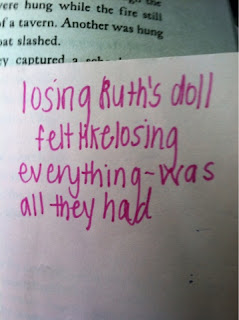 were hung while the fire still
of a tavern. Another was hung
oat slashed.
ey captured a
losing Ruth's doll
felt like losing
everything~was
all they had